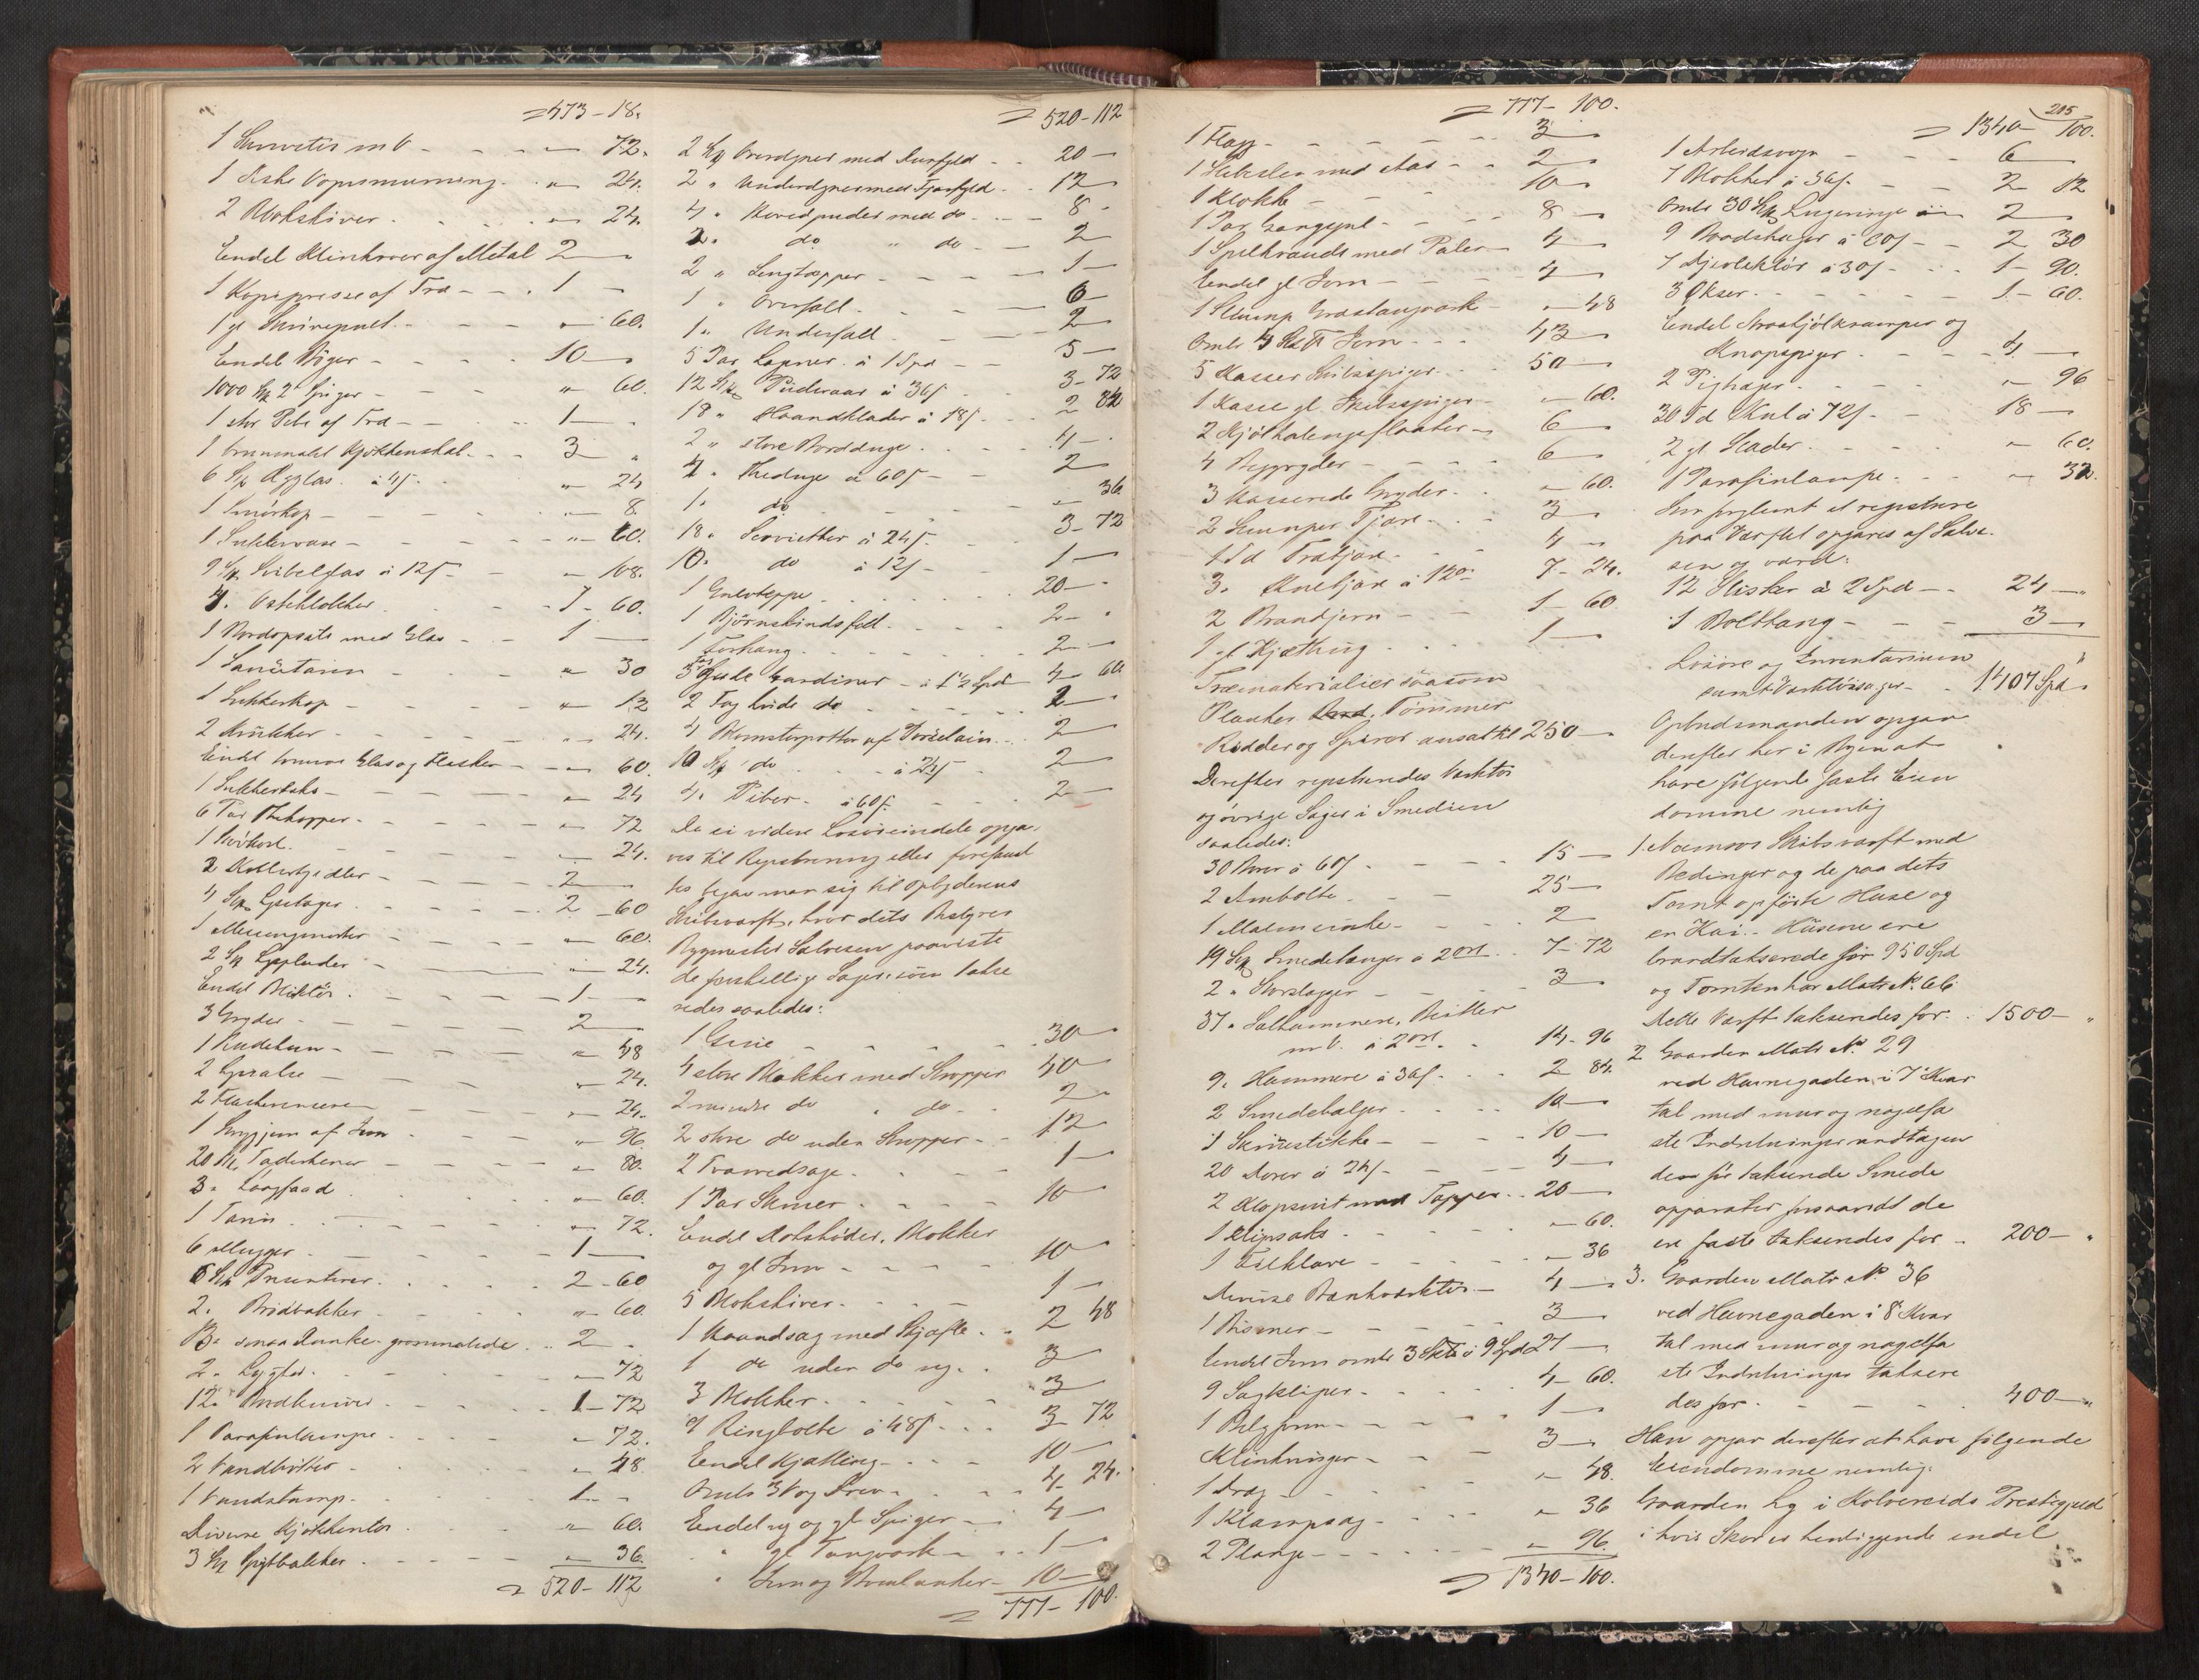 473 - 18.
1 Servetis m V - 72.
1 Aske - 24.
2 Blokskiver - 24.
Endel Klinkover af Metal 2 -
1 Kopipresse af Træ - 1 -
1 gl Skrivepult - 60.
Endel Bøger - 10 -
1000 Stk 2" Spiger - 60.
1 stor Pibe af Træ - 1 -
1 brunmalet Kjøkkenskab - 3 "
6 Stk Ægglas à 4 s - 24
1 Smörkop - 8.
1 Sukkervase - 60.
9 Stk Svibelglas à 12 s - 108.
4. Osteklokker - 1 - 60.
1 Bordopsats med Glas - 1 -
1 - 30
1 Sukkerkop - 12
2 Krukker - 24.
Endel tomme Glas og Flasker - 60.
1 Sukkersaks - 24
6 Par Thekopper - 72
1 Brödkorv - 24.
2 Kobberkjedler - 2 -
4 Stk Lysestager - 2 - 60
1 Messingmorter - 60.
2 Stk - 24.
Endel Bliktöi - 1 -
3 Gryder - 2 -
1 - 48
2 - 24.
2 - 24.
1 af Jern - 96
20 Stk Taderkener - 80.
3 " Langfad - 60.
1 Tarin - 72.
6 Mugger - 1 -
5 Stk Presenterer - 2 - 60
2. Brödbakker - 60.
13 " smaa Dunke grønmalede - 2 -
2 " Lygter - 72
12 " Bordkniver - 1 - 72
1 Parafinlampe - 72.
2 Vandbötter - 48
1 Vandstamp - 1 -
Diverse Kjøkkentøi - 60.
3 Stk Spytbakker - 36.
520 - 112
520 - 112
2 Stk Overdyner med Dunfyld - 20 -
2 " Underdyner med Fjærfyld - 12 -
4 " Hovedpuder med do - 8 -
2 " do " do - 2
2 " Sengtæpper - 1 -
1 " Overfall - 6 -
1 " Underfall - 2
5 Par Lagner à 1 Spd - 5 -
12 Stk Pudevaar à 36 s - 3 - 72
18 " Haandklæder à 18 s - 2 84
2 " store Bordduge - 4 -
4. Theduge à 60 s - 2
1. do - 36
18 " Servietter à 24 s - 3 - 72
10. do à 12 s - 1 -
1 Gulvteppe - 20 -
1 Björnskindsfell - 2 -
1 Forhang - 2 -
3 Fag Gule Gardiner à 1½ Spd 4 - 60.
2 Fag hvide do - 2 -
4 Blomsterpotter af Porcelain - 2
10 Stk do à 24 s - 2
4 " Piber à 60 s - 2 -
Da ei videre Lösöreindele opga-
ves til Registrering eller forefand-
tes begav man sig til Opbydernes
Skibsværft, hvor dets Bestyrer
Bygmester Salvesen paaviste
de forskellige Sager som takse-
redes saaledes:
1 Gine - 30 -
4 store Blokker med Stropper 40 -
2 mindre do " do - 2 -
2 store do uden Stropper - 12
2 Tværvedsage - 1 -
1 Par Skruer - 10
Endel Dokshöder, Blokker
og gl Jern - 10 -
5 Blokskiver - 1 -
1 Haandsag med Skjæfte - 2 48
1 do uden do ny - 3
3 Blokker - 3
9 Ringbolte à 48 s - 3 - 72
Endel Kjætting - 10 -
Omb 3 Vog Drev - 4 - 24.
Endel ny og gl Spiger - 4 -
" gl Tougværk - 1 -
" Jern og Bomlanker - 10 -
777 - 100.
777 - 100.
1 Flag - 3 -
1 Slibesten med Aas - 2
1 Klokke - 10
1 Par Gangspil - 8 -
1 Spilbrands med Paler - 4
Endel gl Jern - 4
1 Stump Grastougværk - 48
Omb 4 Sk tt Jern - 43
5 Kasser Skibsspiger - 50 -
1 Kasse gl Skibsspiger - 60.
2 Kjölhalingsflaater - 6
4 Beggryder - 6 -
3 Kasserede Gryder - 60.
2 Slumper Tjære - 3
1 Td Trætjære - 4
3. Kultjære à 12 ort 7 - 24.
2 Brandjern - 1 - 60
1 gl Kjætting - 1 -
Træmaterialier saasom
Planker, Tömmer
Rödder og Spirer ansat til 250 -
Derefter registreredes Værktøi
og övrige Sager i Smedien
saaledes:
30 Borer à 60 s - 15 -
2 Ambolte - 25 -
1 Malmvinke - 2
19 Stk Smedetænger à 2 ort - 7 - 72
2 " Storslegger - 3
37 " Sathammere, Beitler
m V. à 2 ort - 14 - 96
9. Hammere à 36 s - 2 84.
2 Smedebælger - 10 -
1 Skruestikke - 10 -
20 Dorer à 24 s - 4 -
2 Klopsnit med Tapper - 20 -
1 Klipsaks - 60.
1 Filklove - 36
Diverse Bænkværktøi - 4 -
1 Bismer - 3
Endel Jern omb 3 Sktt à 9 Spd 27 -
9 Sagklipper - 4 - 60.
1 Belgform - 1 -
Klinkringer - 3 -
1 Drag - 48.
1 Klampsag - 36
2 Plange - 96.
1340 - 100.
205
1340 100.
1 Arbeidsvogn - 6 -
7 Blokker à 36 s - 2 12
Omb 30 Stk Lugeringe - 2 -
9 Baadshager à 30 s - 2 30
7 Djevleklör à 30 s - 1 - 90.
3 Økser - 1 - 60.
Endel Straakjölkramper og
Knopspiger - 4 -
2 Pighager - 96
30 Td Kul à 72 s - 18 -
2 gl Slæder - 60.
1 Parafinlampe - 32.
Som forglemt at registrere
paa Værftet opgaves af Salve-
sen og vard:
12 Klister à 2 Spd - 24 -
1 Bolttang - 3 -
Lösöre og Inventarium
samt Værktöisager - 1407 Spd
Opbudsmanden opgav
derefter her i Byen at
have fölgende faste Eien-
domme nemlig
1. Namsos Skibsværft med
Bedinger og de paa dets
Tomt opförte Huse og
en Kai. - Husene ere
brandtakserede for 950 Spd
og Tomten har Matr. No. 66
Dette Værft takseredes for - 1500 - "
2 Gaarden Matr No. 29
ved Havnegaden i 7 Kvar-
tal med mur og nagelfa-
ste Indretninger undtagen
de för takserede Smede-
apparater forsaavidt de
ere faste takseredes for - 200 - "
3. Gaarden Matr No 36
ved Havnegaden i 8 Kvar-
tal med mur og nagelfa-
ste Indretninger taksere-
des for - 400 - "
Han opgav derefter at have fölgende
Eiendomme nemlig:
Gaarden Lø i Kolvereids Prestegjeld
i hvis Skov er henliggende endel